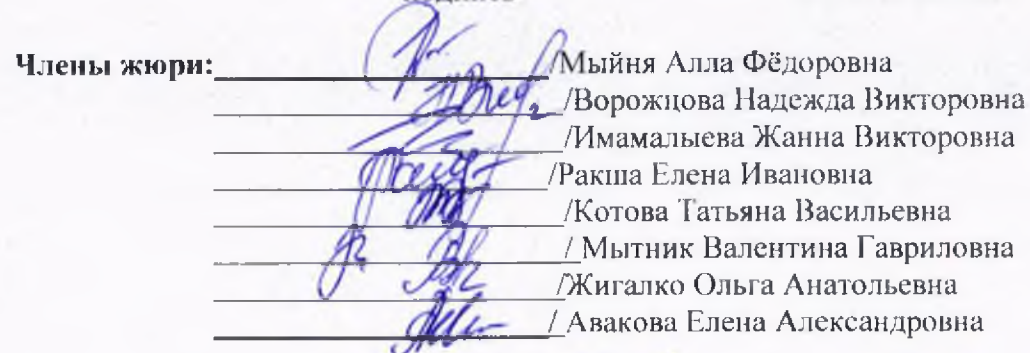 Члены жюри: /Мыйня Алла Фёдоровна
/Ворожцова Надежда Викторовна
/Имамалыева Жанна Викторовна
/Ракша Елена Ивановна
/Котова Татьяна Васильевна
/ Мытник Валентина Гавриловна
/Жигалко Ольга Анатольевна
/ Авакова Елена Александровна